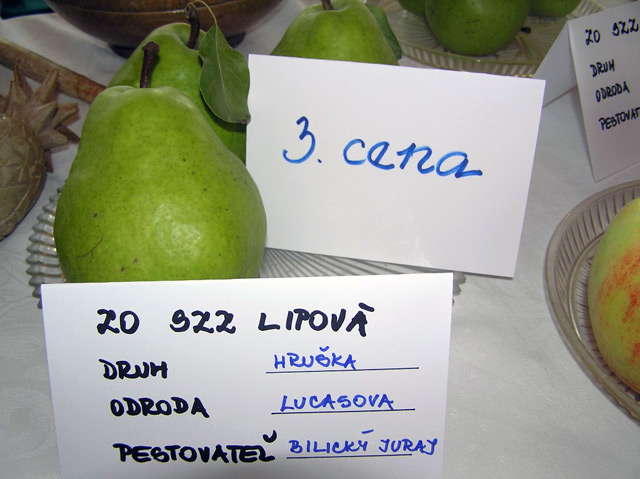 3. cena
ZO SZZ LIPOVÁ
DRUH HRUŠKA
ODRODA LUCASOVA
PESTOVATEĽ BILICKÝ JURAJ
ZO SZZ
DRUH
ODRODA